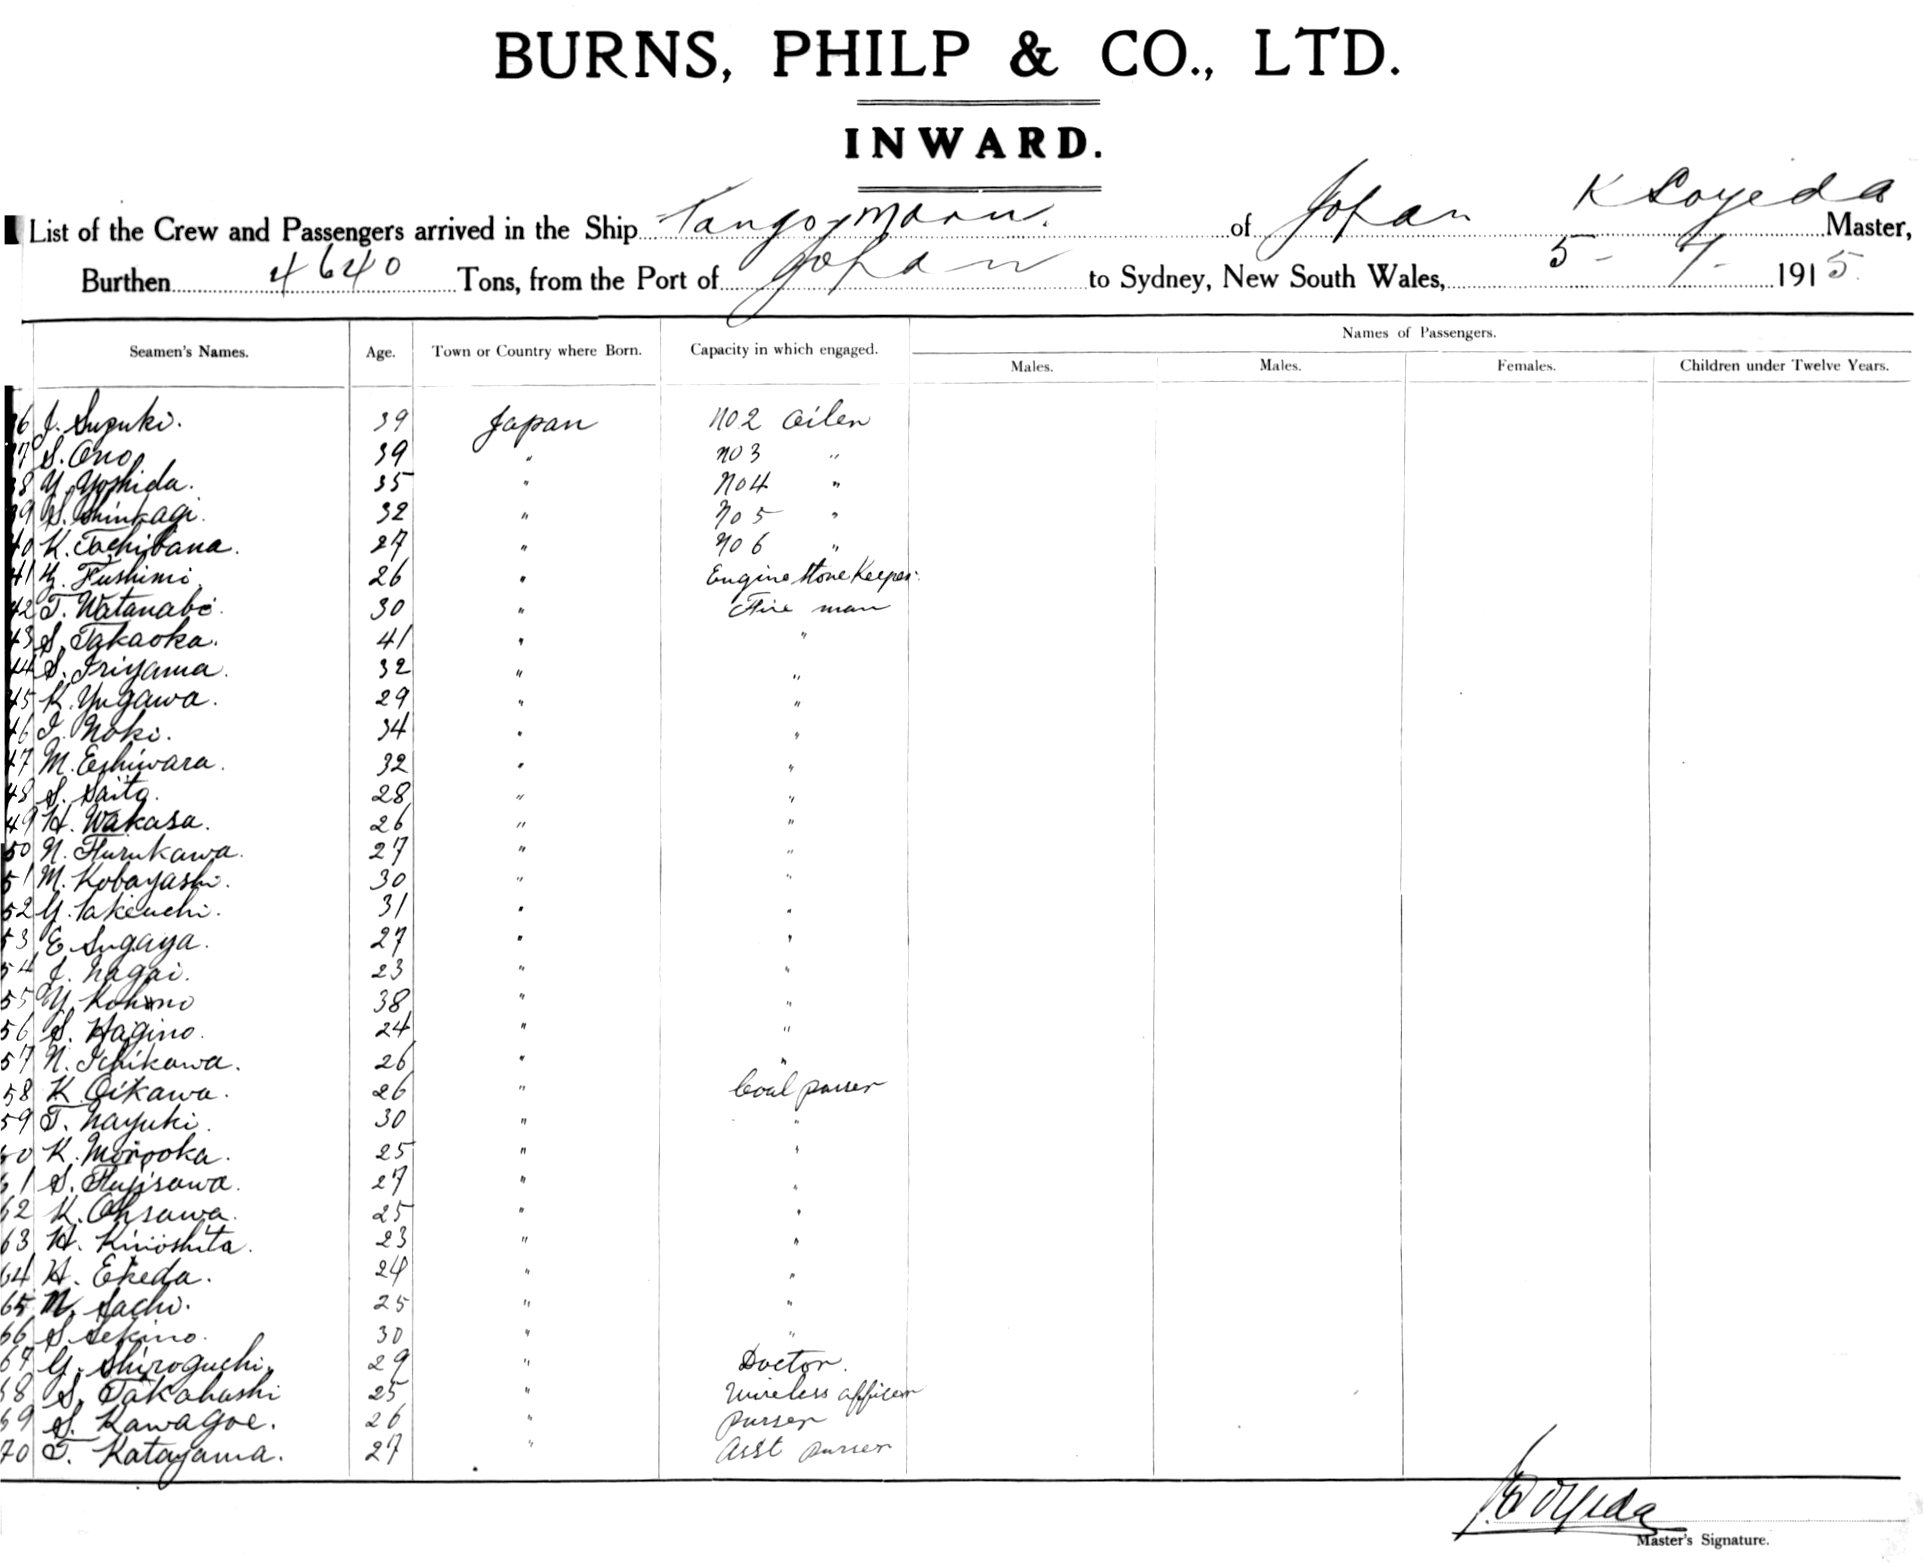 BURNS, PHILP & CO., LTD.
INWARD.
List of the Crew and Passengers arrived in the Ship Tango Maru. of Japan K Soyeda Master,
Burthen 4640 Tons, from the Port of Japan to Sydney, New South Wales, 5 - 7 - 1915.
Names of Passengers.
Seamen's Names. Age. Town or Country where Born. Capacity in which engaged. Males. Males. Females. Children under Twelve Years.
36 J. Suzuki. 39 Japan No 2 Oiler
37 S. Ono 39 " No 3 "
38 Y. Yoshida. 35 " No 4 "
39 S. Shinkagi. 32 " No 5 "
40 K. Tachibana. 27 " No 6 "
41 Fushimi. 26 " Engine Store Keeper.
42 T. Watanabe. 30 " Fire man
43 S. Takaoka. 41 " "
44 S. Iriyama. 32 " "
45 K. Yugawa. 29 " "
46 I. Noki. 34 " "
47 M. Eshiwara. 32 " "
48 S. Saito. 28 " "
49 H. Wakasa. 26 " "
50 N. Furukawa. 27 " "
51 M. Kobayashi. 30 " "
52 Y. Takeuchi. 31 " "
53 E. Sugaya. 27 " "
54 J. Nagai. 23 " "
55 Y. Kohno 38 " "
56 S. Hagino. 24 " "
57 N. Ichikawa. 26 " "
58 K. Oikawa. 26 " Coal passer
59 T. Nayuki. 30 " "
60 K. Morooka. 25 " "
61 S. Fujisawa. 27 " "
62 K. Ohsawa. 25 " "
63 H. Kinoshita. 23 " "
64 H. Ekeda. 24 " "
65 M. Sachi. 25 " "
66 S. Sekino. 30 " "
67 Y. Shiroguchi. 29 " Doctor.
68 S. Takahashi 25 " Wireless officer
69 S. Kawagoe. 26 " Purser
70 T. Katayama. 27 " Asst purser
K Soyeda
Master's Signature.